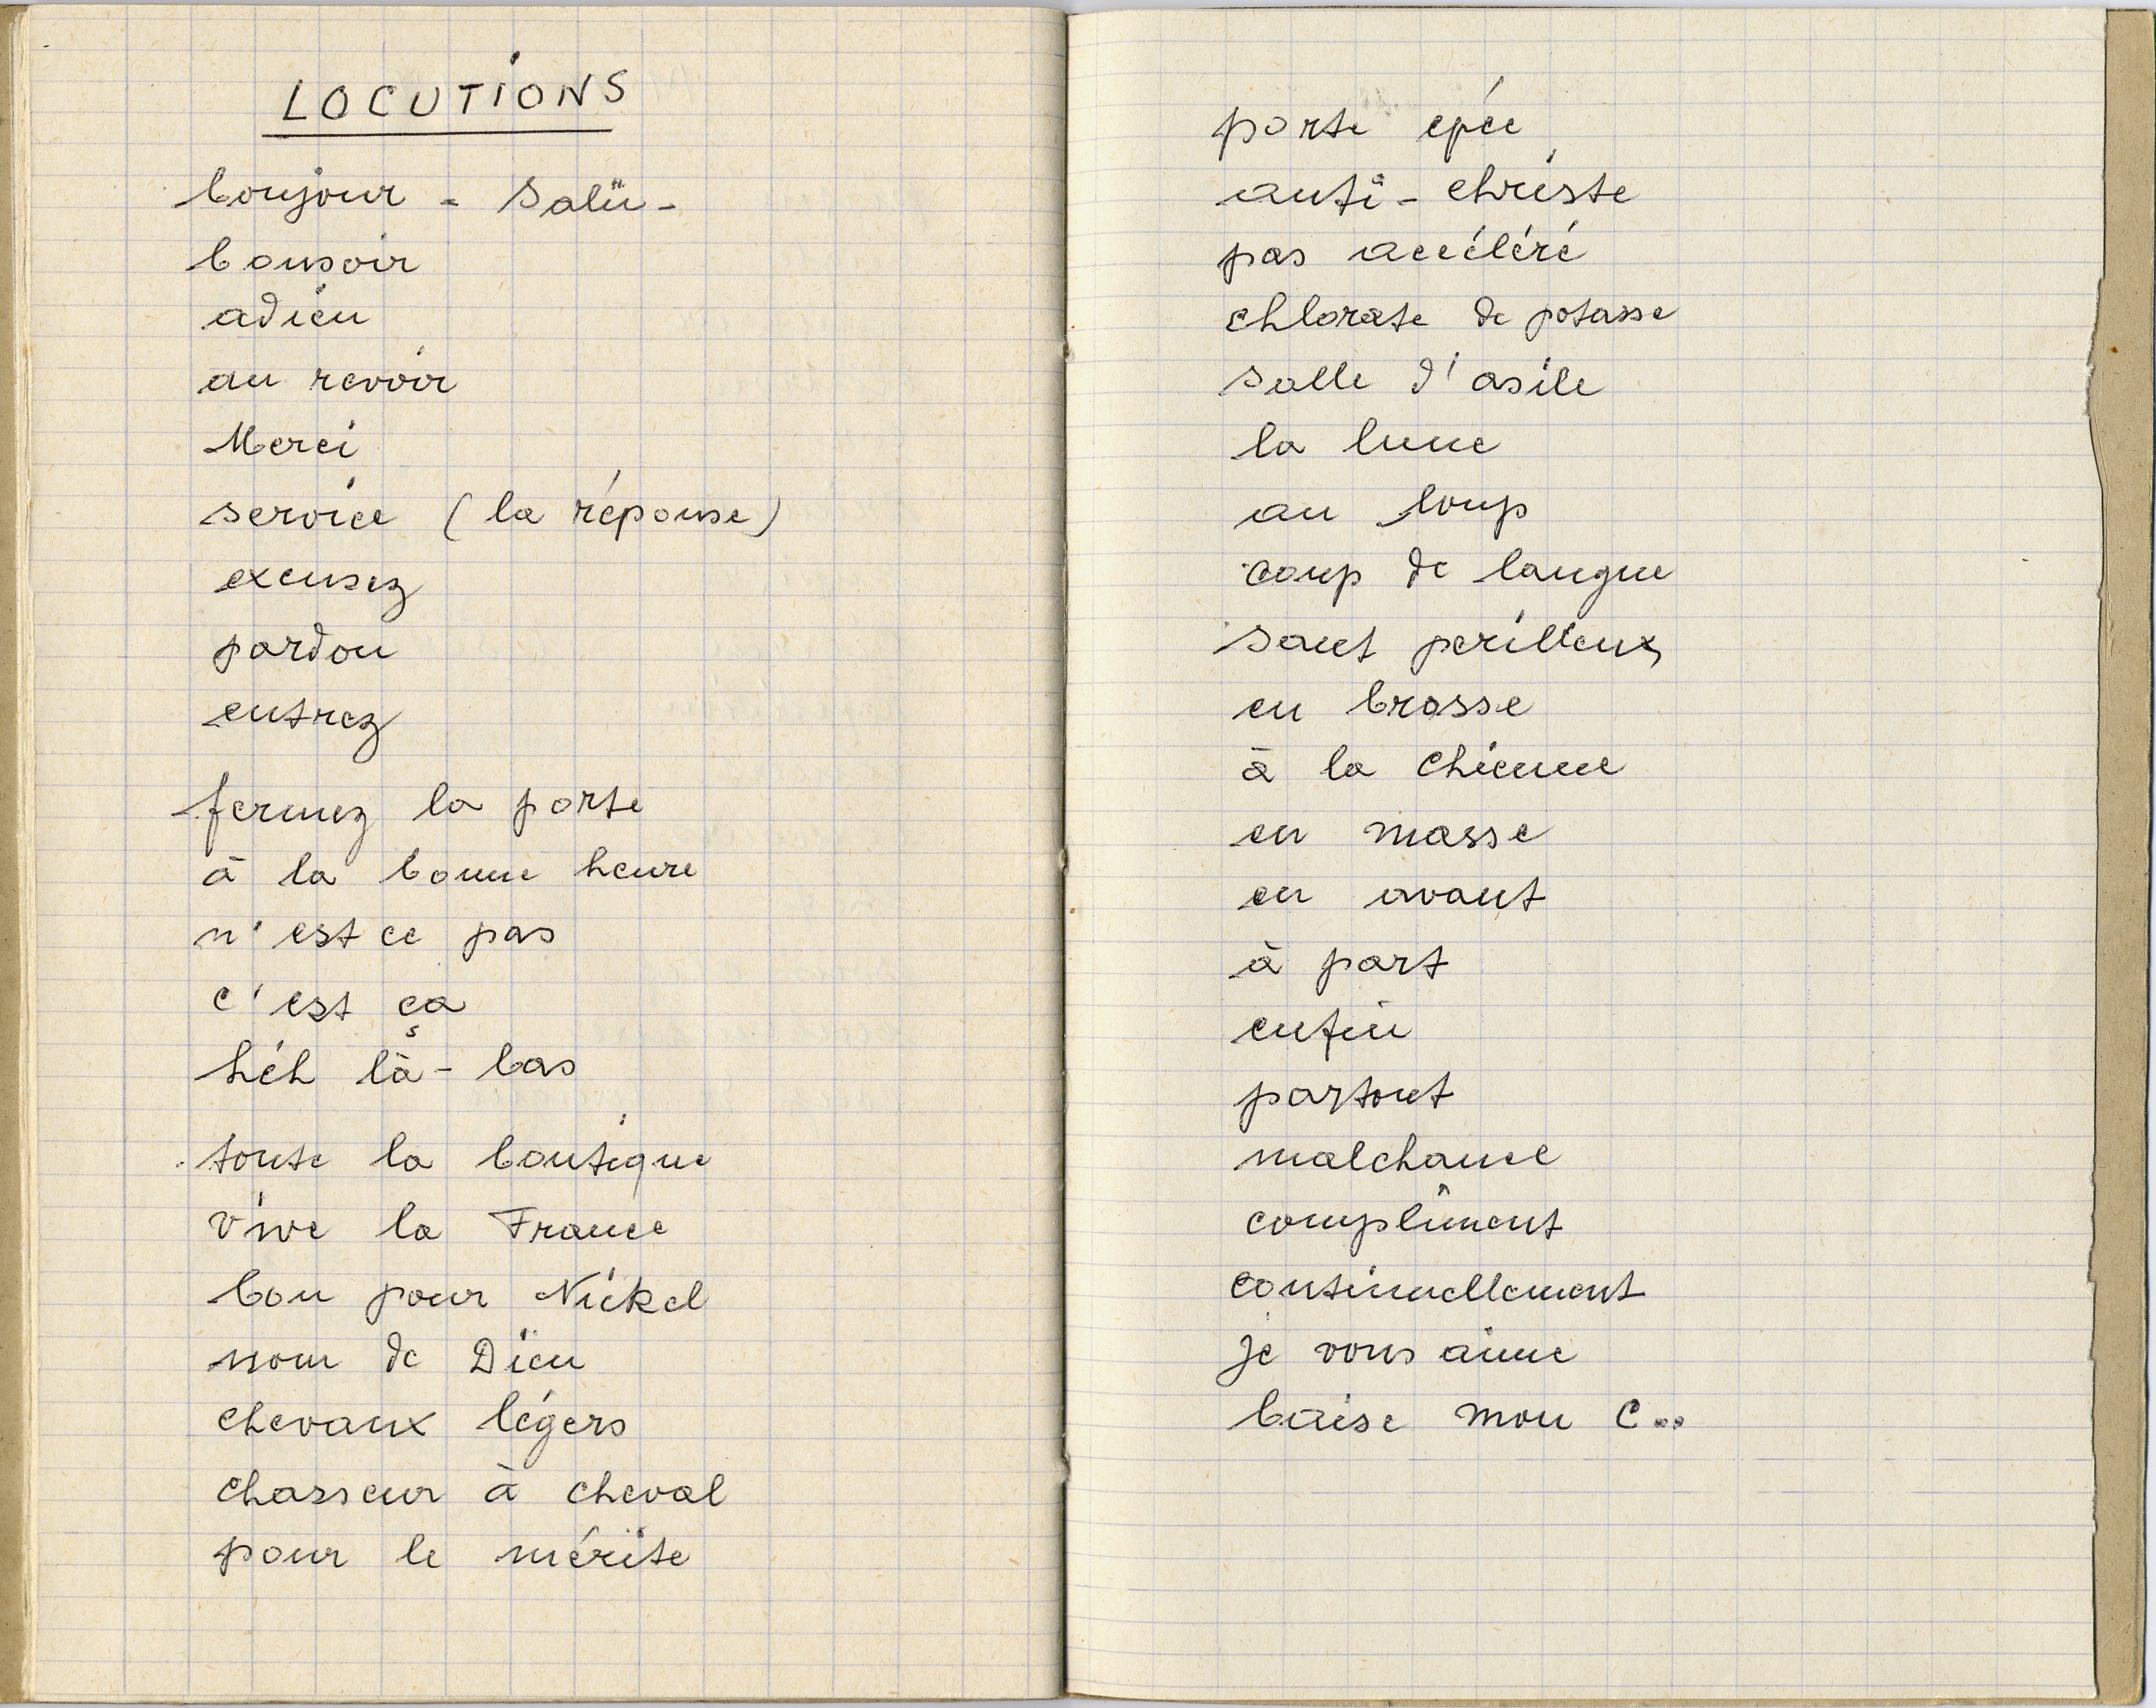 LOCUTIONS
bonjour - Salü -
bonsoir
adieu
au revoir
Merci
service (la réponse)
excusez
pardon
entrez
fermez la porte
à la bonne heure
n'est ce pas
c'est ça
héh là-bas
toute la boutique
vive la France
bon pour Nickel
nom de Dieu
chevaux légers
chasseur à cheval
pour le mérite
porte epée
anti-christe
pas accéléré
chlorate de potasse
salle d'asile
la lune
au loup
coup de langue
saut perilleux
en brosse
à la chienne
en masse
en avant
à part
enfin
partout
malchance
compliment
continuellement
je vous aime
baise mon C..